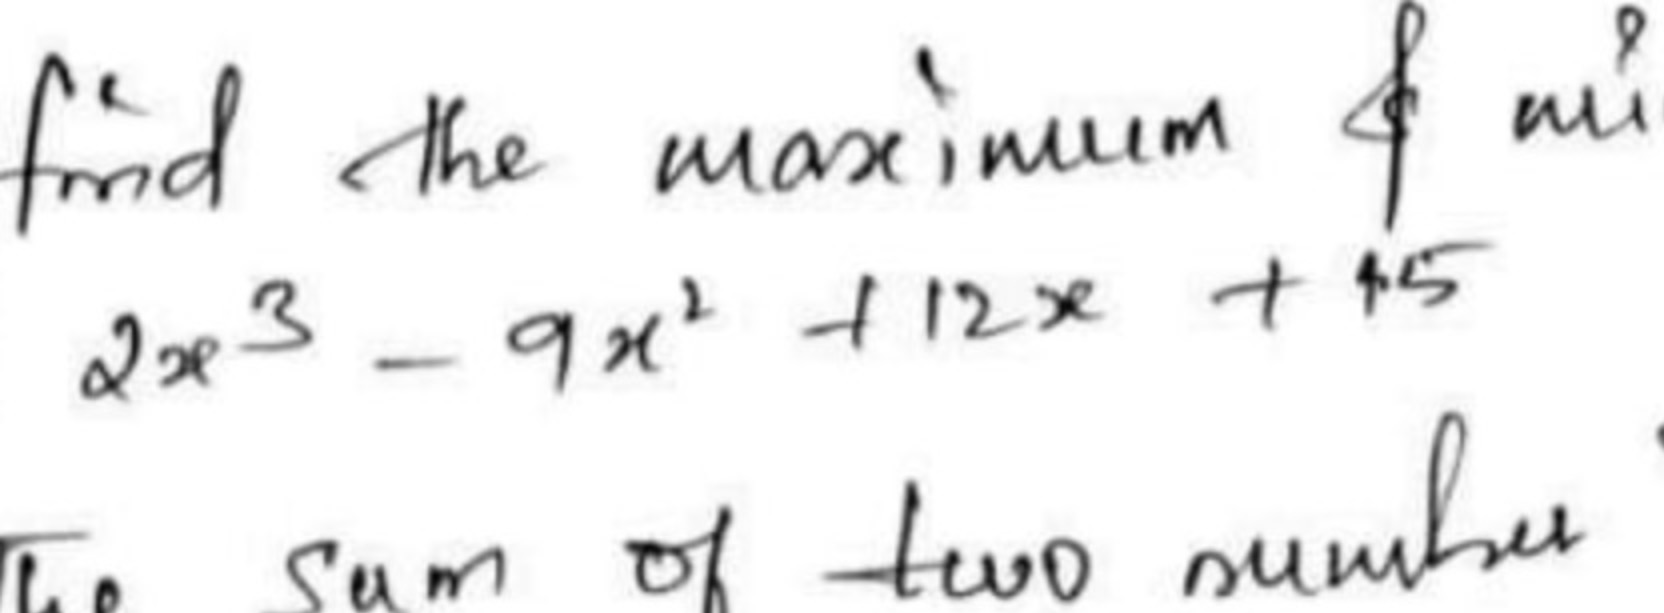 find the maximum & mi
2x³ - 9x² + 12x + 15
The sum of two number